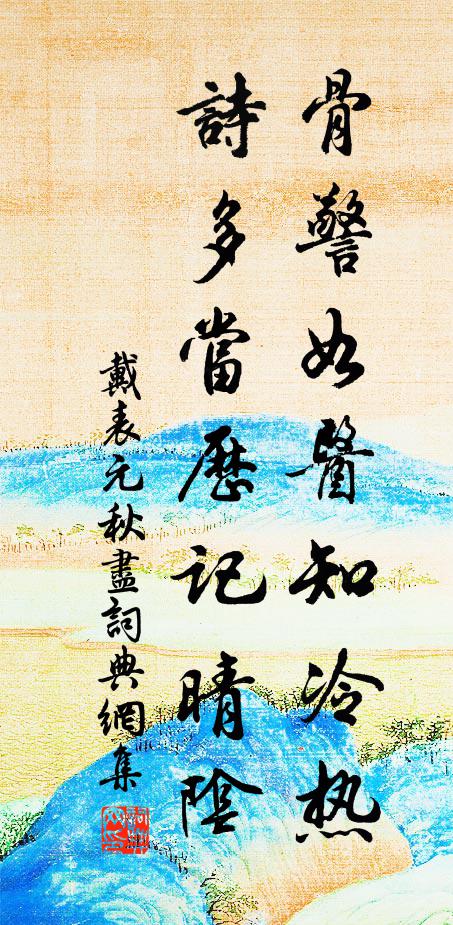 骨警如醫知冷热
詩多當歷記晴陰
戴表元秋盡詞典網集